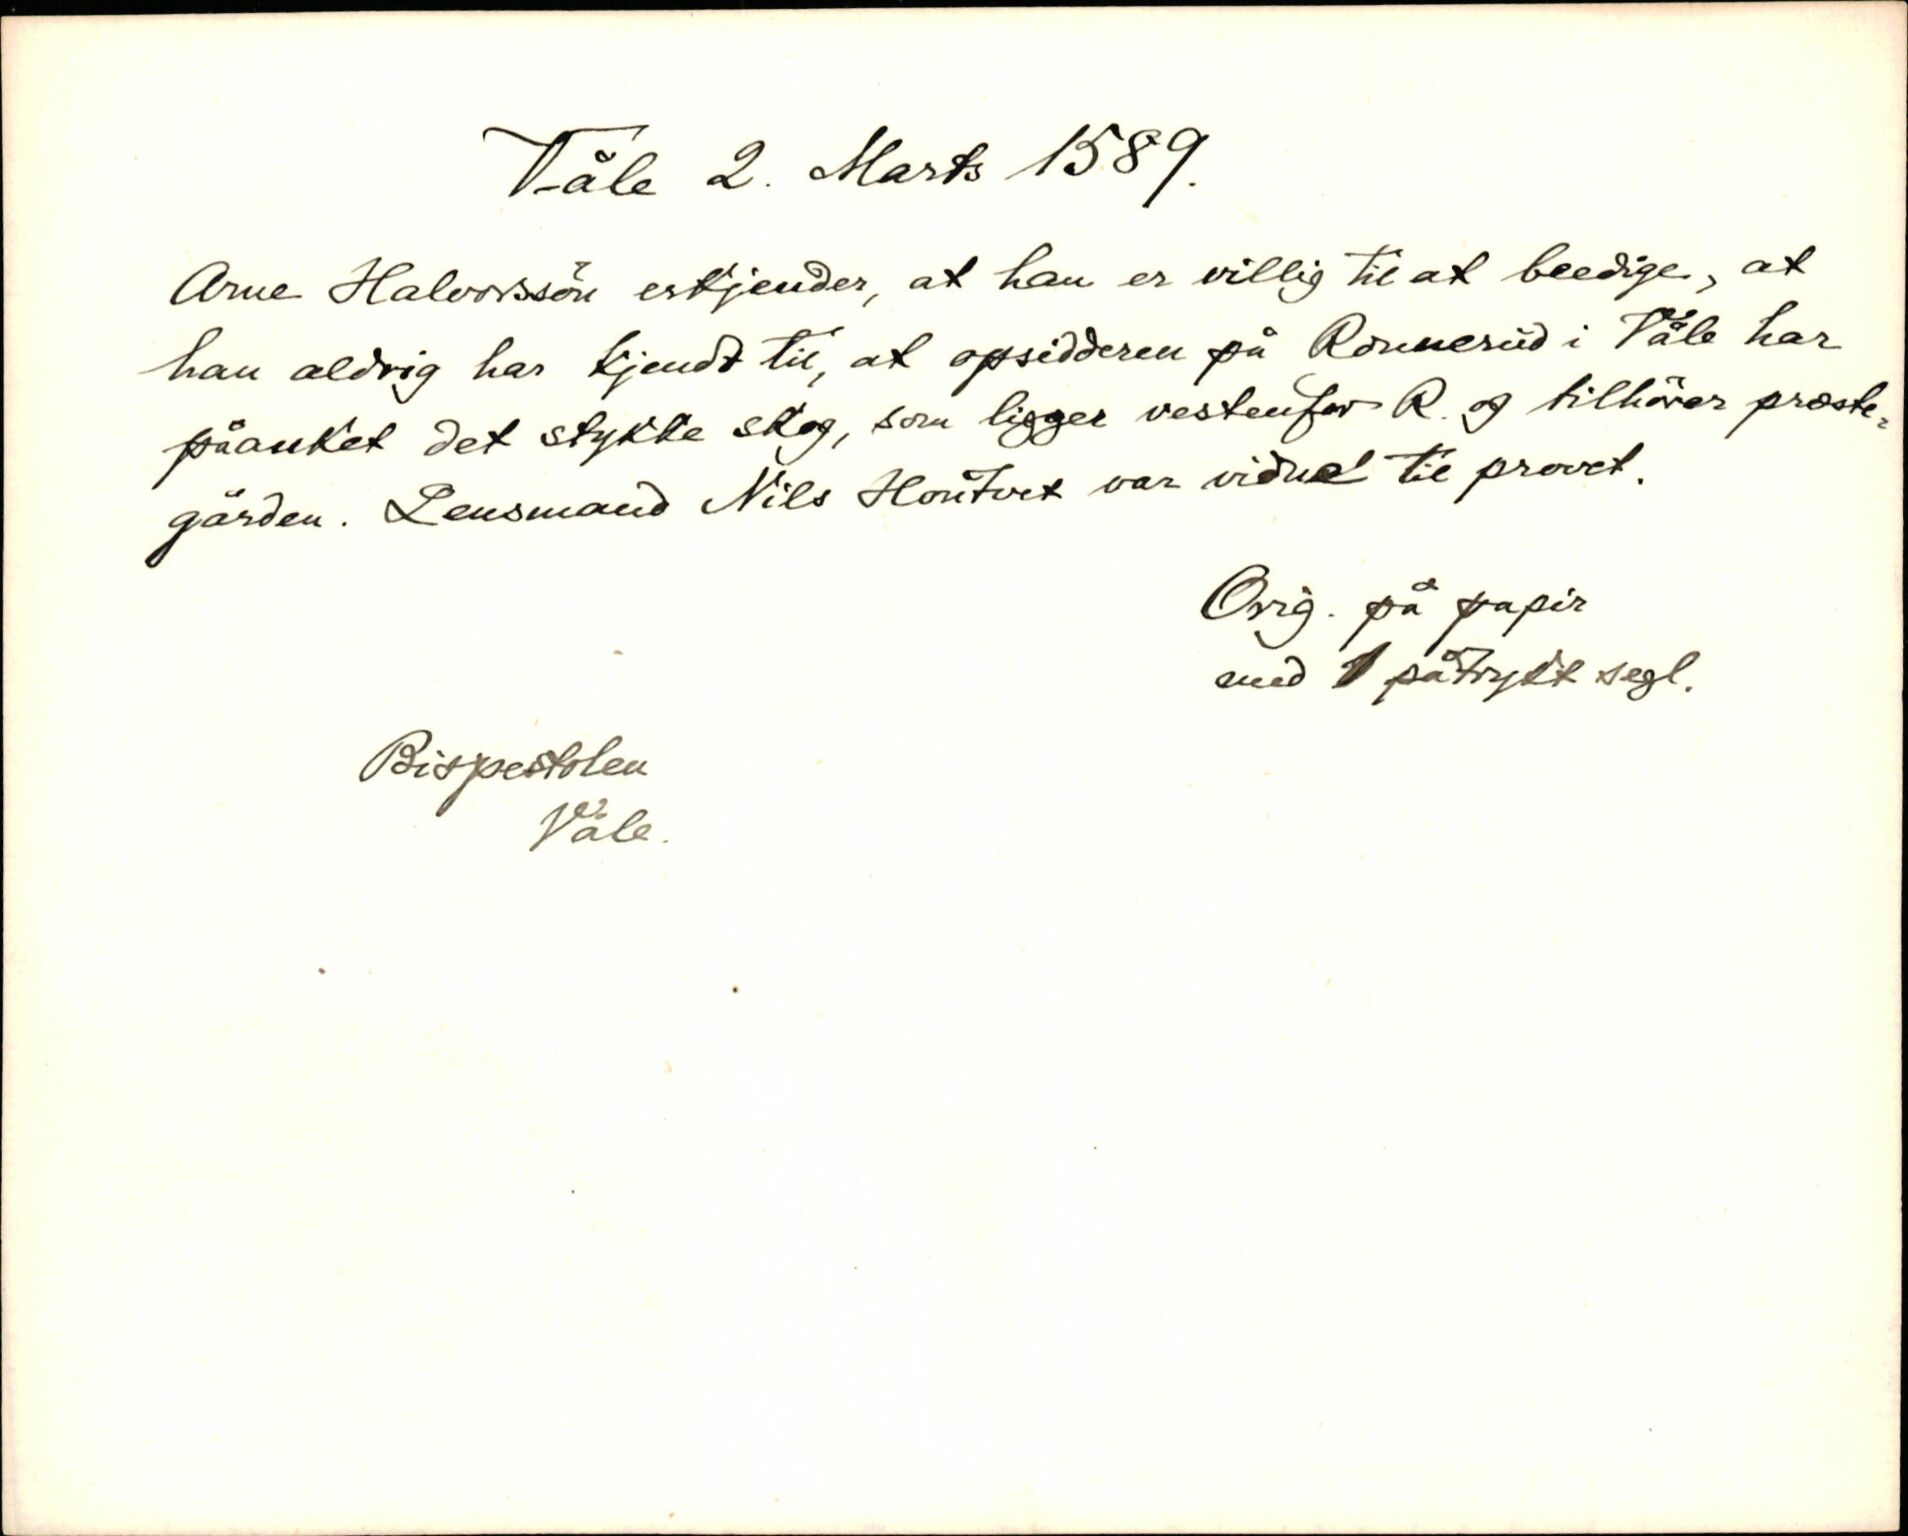 Våle 2. Marts 1589.
Arne Halvorssön erkjender, at han er villig til at beedige, at
han aldrig har kjendt til, at opsidderen på Rönnerud i Våle har
påanket det stykke skog, som ligger vestenfor R. og tilhörer præste-
gården. Lensmand Nils Hontvet var vidne til provet.
Orig. på papir
med 1 påtrykt segl.
Bispestolen
Våle.